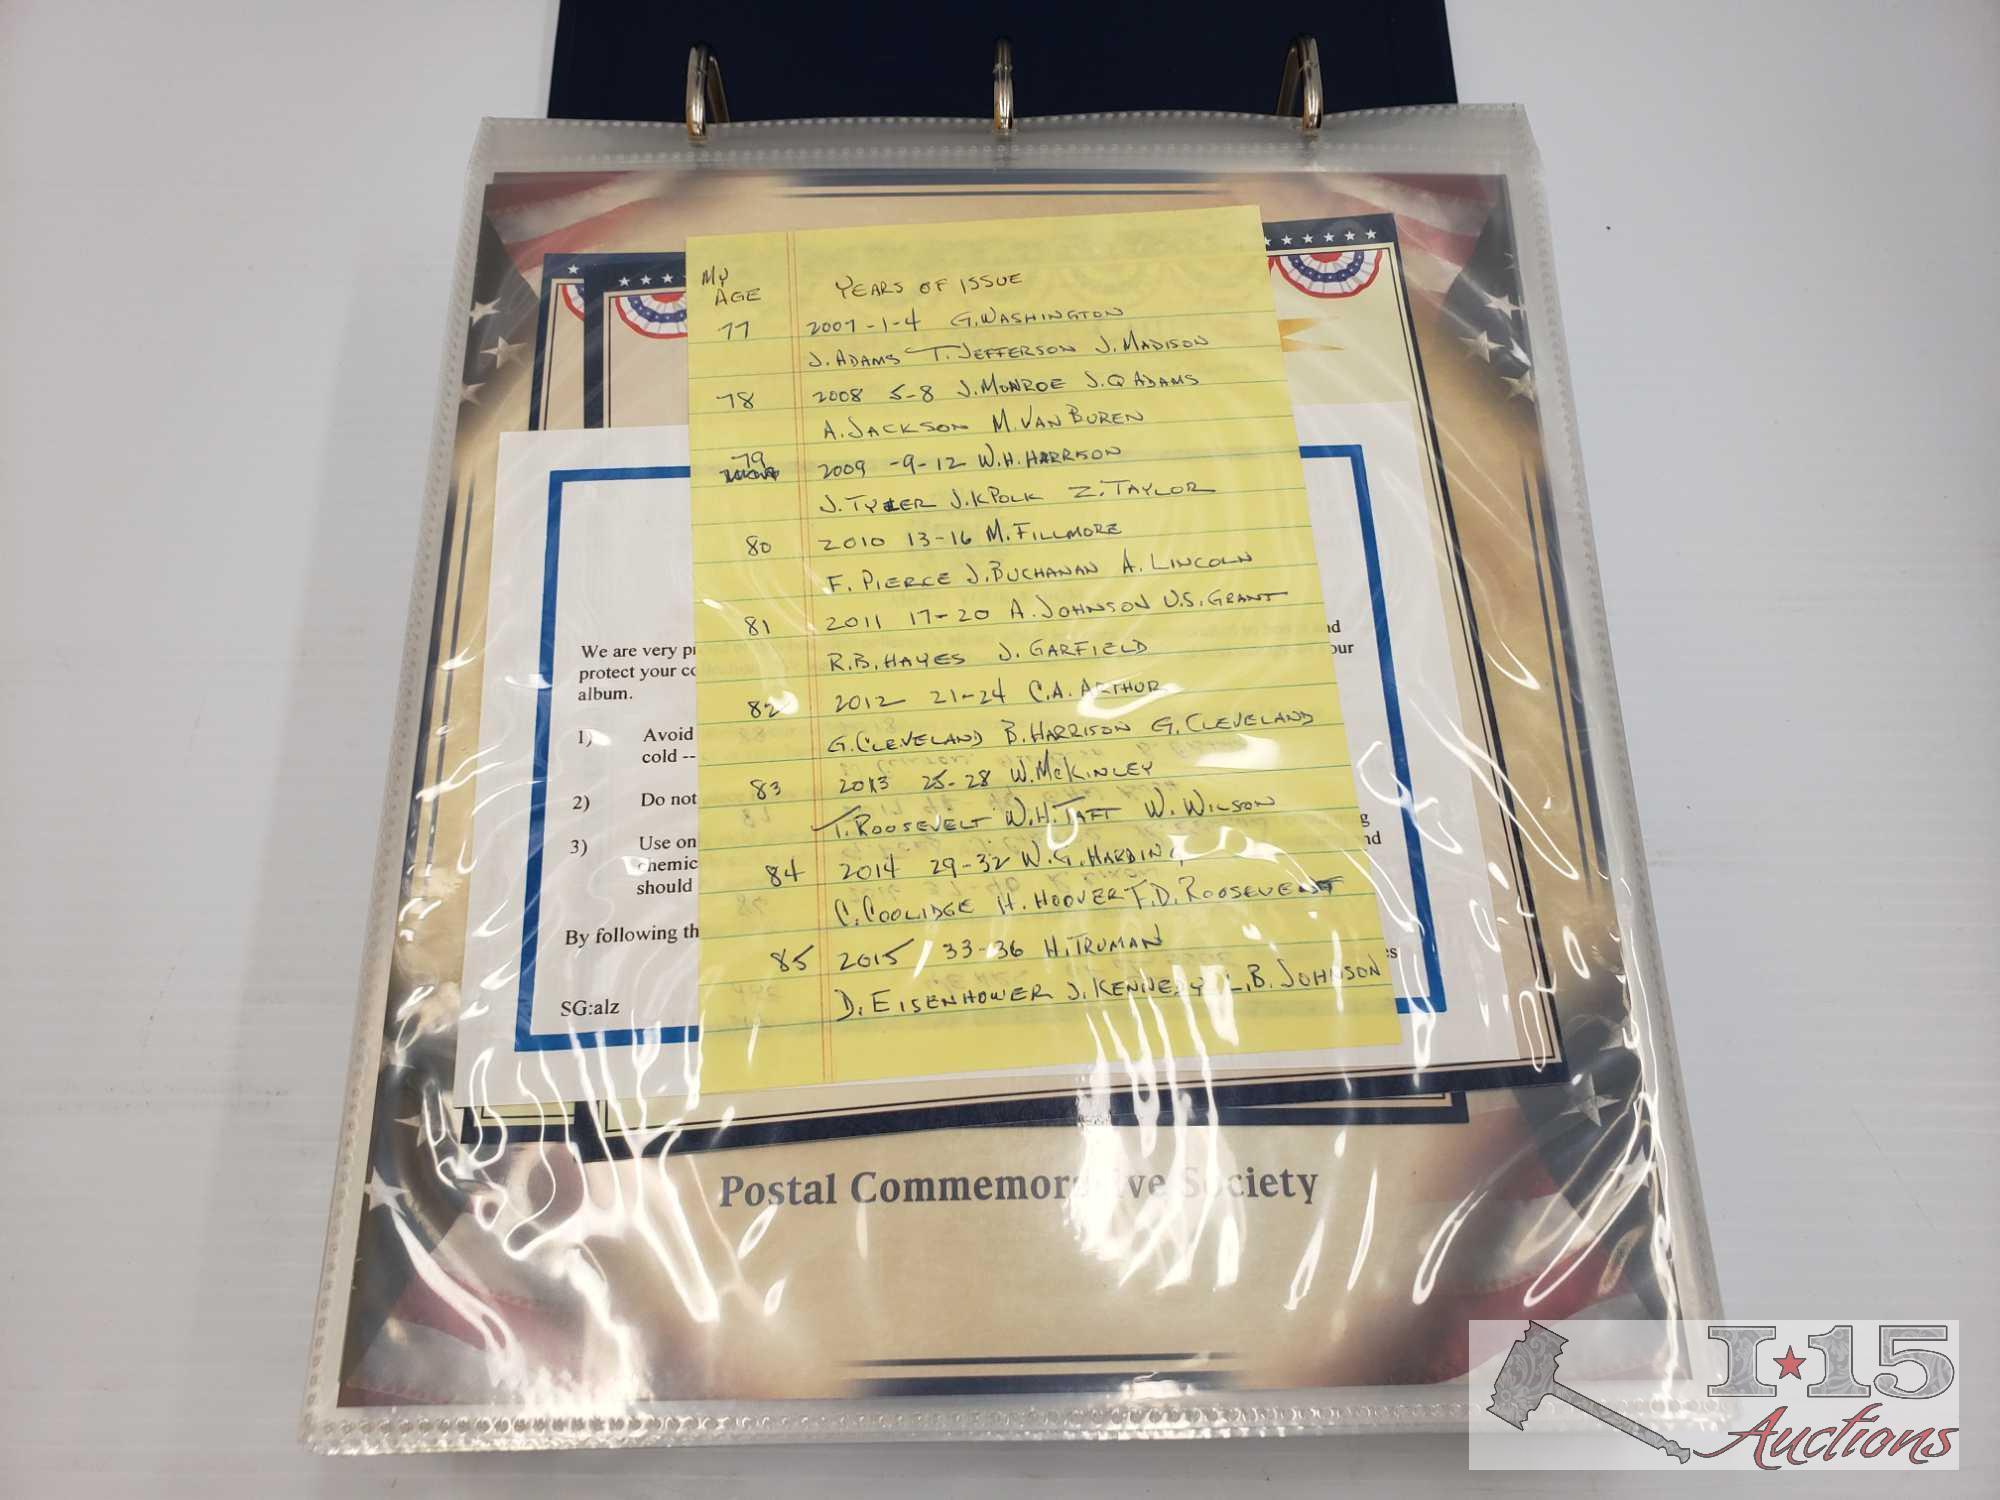 MY
AGE YEARS OF ISSUE
77 2007-1-4 G. WASHINGTON
J. ADAMS T. JEFFERSON J. MADISON
78 2008 5-8 J. MONROE J.Q ADAMS
A. JACKSON M. VAN BUREN
79 2009 -9-12 W.H. HARRISON
J. TYLER J.K POLK Z. TAYLOR
80 2010 13-16 M. FILLMORE
F. PIERCE J. BUCHANAN A. LINCOLN
81 2011 17-20 A. JOHNSON U.S. GRANT
R.B. HAYES J. GARFIELD
82 2012 21-24 C.A. ARTHUR
G. CLEVELAND B. HARRISON G. CLEVELAND
83 2013 25-28 W. McKINLEY
T. ROOSEVELT W.H. TAFT W. WILSON
84 2014 29-32 W.G. HARDING
C. COOLIDGE H. HOOVER F.D. ROOSEVELT
85 2015 33-36 H. TRUMAN
D. EISENHOWER J. KENNEDY L.B. JOHNSON
We are very
protect your
album.
1) Avoid
cold --
2) Do not
3) Use
should
By following
SG:alz
Postal Commemorative Society
I-15
Auctions